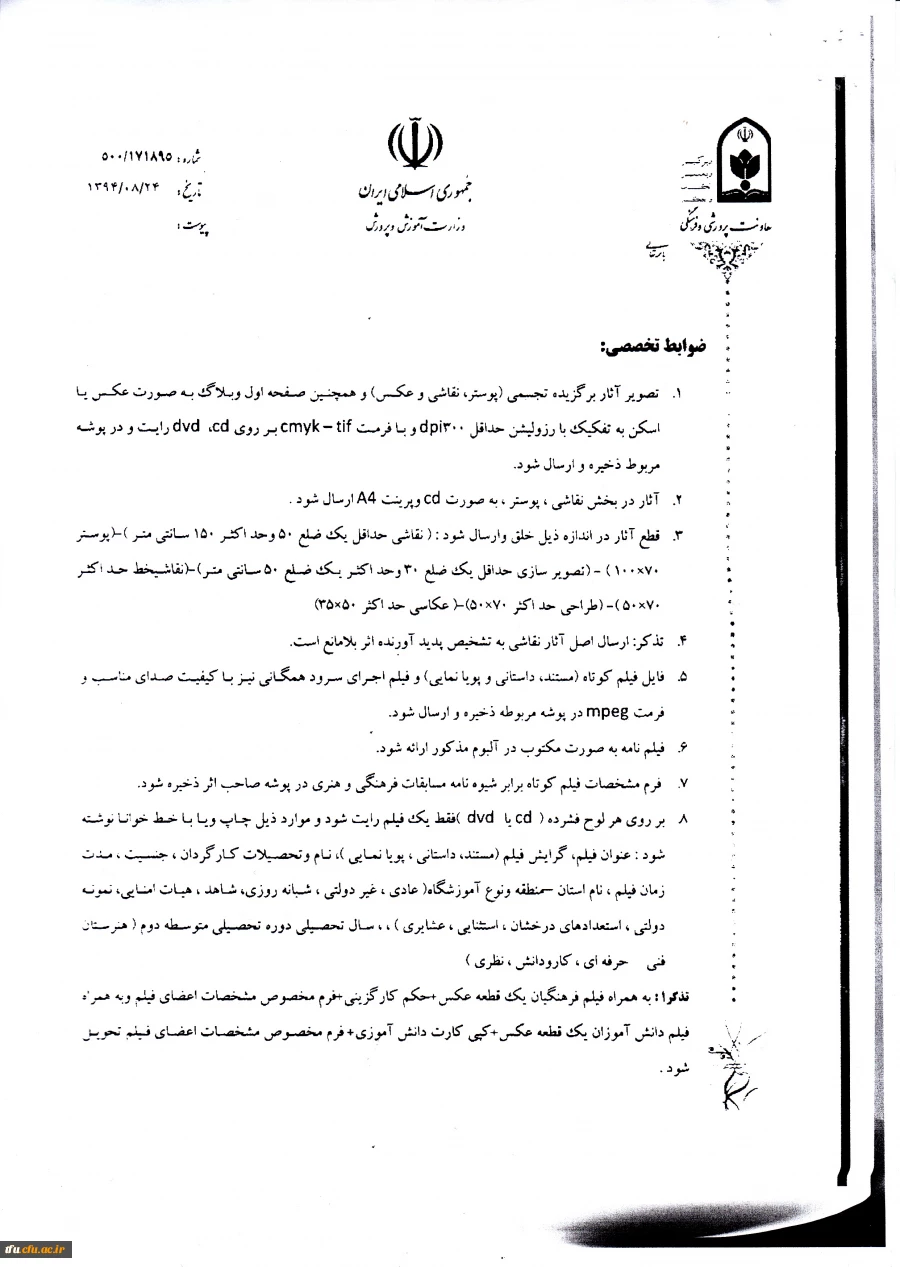 جمهوری اسلامی ایران
وزارت آموزش و پرورش
معاونت پرورشی و فرهنگی
شماره: ۵۰۰/۱۷۱۸۹۵
تاریخ: ۱۳۹۴/۰۸/۲۴
پیوست:
ضوابط تخصصی:
۱. تصویر آثار برگزیده تجسمی (پوستر، نقاشی و عکس) و همچنین صفحه اول وبلاگ به صورت عکس یا
اسکن به تفکیک با رزولیشن حداقل dpi۳۰۰ و با فرمت cmyk – tif بر روی dvd ،cd رایت و در پوشه
مربوط ذخیره و ارسال شود.
۲. آثار در بخش نقاشی ، پوستر ، به صورت cd وپرینت A4 ارسال شود .
۳. قطع آثار در اندازه ذیل خلق وارسال شود : ( نقاشی حداقل یک ضلع ۵۰ وحد اکثر ۱۵۰ سانتی متر )-(پوستر
۱۰۰×۷۰ ) - (تصویر سازی حداقل یک ضلع ۳۰ وحد اکثر یک ضلع ۵۰ سانتی متر)-(نقاشیخط حد اکثر
۵۰×۷۰ )- (طراحی حد اکثر ۷۰×۵۰)-( عکاسی حد اکثر ۵۰×۳۵)
۴. تذکر: ارسال اصل آثار نقاشی به تشخیص پدید آورنده اثر بلامانع است.
۵. فایل فیلم کوتاه (مستند، داستانی و پویا نمایی) و فیلم اجرای سرود همگانی نیز با کیفیت صدای مناسب و
فرمت mpeg در پوشه مربوطه ذخیره و ارسال شود.
۶. فیلم نامه به صورت مکتوب در آلبوم مذکور ارائه شود.
۷. فرم مشخصات فیلم کوتاه برابر شیوه نامه مسابقات فرهنگی و هنری در پوشه صاحب اثر ذخیره شود.
۸ بر روی هر لوح فشرده ( cd یا dvd )فقط یک فیلم رایت شود و موارد ذیل چاپ ویا با خط خوانا نوشته
شود : عنوان فیلم، گرایش فیلم (مستند، داستانی ، پویا نمایی )، نام وتحصیلات کارگردان ، جنسیت ، مدت
زمان فیلم ، نام استان –منطقه ونوع آموزشگاه( عادی ، غیر دولتی ، شبانه روزی، شاهد ، هیات امنایی، نمونه
دولتی ، استعدادهای درخشان ، استثنایی ، عشایری ) ، ، سال تحصیلی دوره تحصیلی متوسطه دوم ( هنرستان
فنی حرفه ای ، کارودانش ، نظری )
تذکر۱: به همراه فیلم فرهنگیان یک قطعه عکس+حکم کارگزینی+فرم مخصوص مشخصات اعضای فیلم وبه همراه
فیلم دانش آموزان یک قطعه عکس+کپی کارت دانش آموزی+فرم مخصوص مشخصات اعضای فیلم تحویل
شود .
tfu.cfu.ac.ir